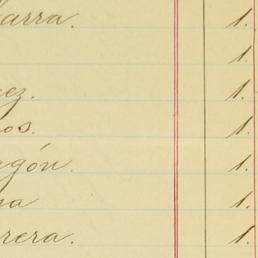 arra. 1.
1.
ez. 1.
os. 1.
agón. 1.
na 1.
rera. 1.